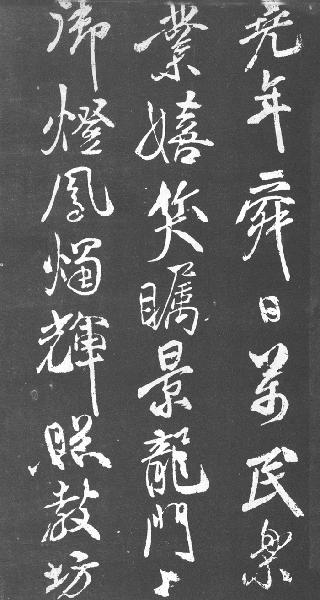 堯年舜日萬民樂
業嬉笑瞩景龍門上
御燈鳳燭輝照教坊